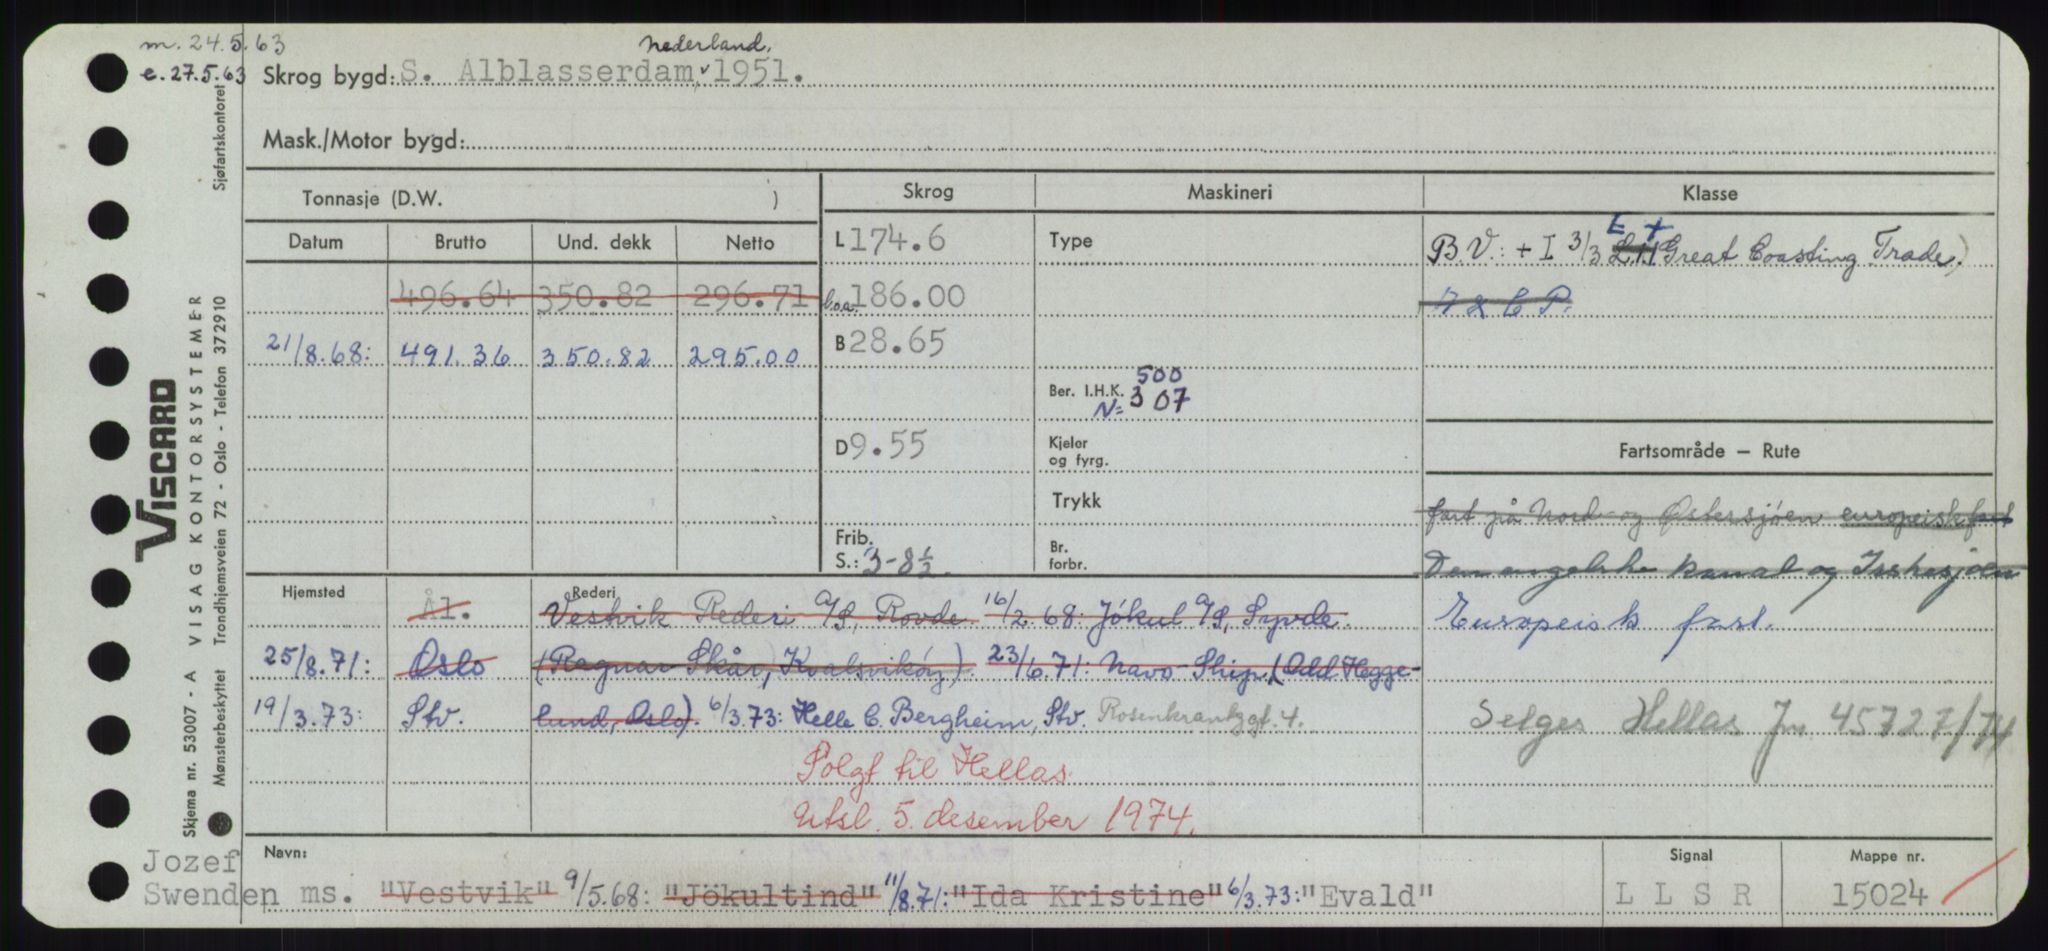 m. 24.5.63
e. 27.5.63
Nederland.
Skrog bygd: S. Alblasserdam, 1951.
Mask./Motor bygd:
Sjøfartskontoret
VISCARD
VISAG KONTORSYSTEMER
Trondhjemsveien 72 - Oslo - Telefon 372910
Skjema nr. 53007 - A
Mønsterbeskyttet
Tonnasje (D.W. )
Datum Brutto Und. dekk Netto
496.64 350.82 296.71
21/8.68: 491.36 350.82 295.00
Skrog
L 174.6
l.o.a. 186.00
B 28.65
D 9.55
Frib.
S.: 3-8½.
Maskineri
Type
500
Ber. I.H.K. 307
N=
Kjeler
og fyrg.
Trykk
Br.
forbr.
Klasse
E +
B.V.: + I 3/3 Great Coasting Trade.)
A & C P.
Fartsområde — Rute
fart på Nord- og Østersjøen europeisk fart
Den engelske kanal og Irskesjøen
Europeisk fart.
Selges Hellas Jnr. 45727/74
Hjemsted Rederi
Ål. Vestvik Rederi A/S, Rovde. 16/2.68: Jökul A/S, Syvde.
25/8.71: Oslo (Ragnar Skår, Kvalsvikøy). 23/6.71: Navo-Ship, (Odd Hegge-
19/3.73: Stv. lund, Oslo). 6/3.73: Helle C. Bergheim, Stv. Rosenkrantzgt. 4.
Solgt til Hellas.
Utsl. 5. desember 1974.
Navn:
Jozef
Swenden ms. "Vestvik" 9/5.68: "Jökultind" 11/8.71: "Ida Kristine" 6/3.73: "Evald"
Signal
L L S R
Mappe nr.
15024